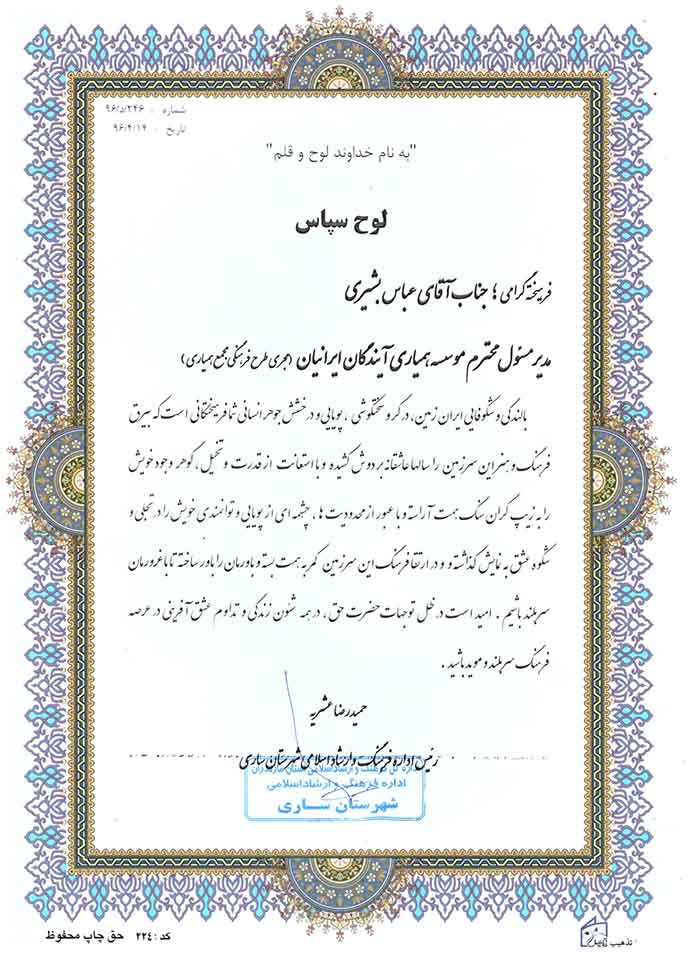 شماره : ۹۶/د/۲۴۶
تاریخ : ۹۶/۴/۱۴
"به نام خداوند لوح و قلم"
لوح سپاس
فریخته گرامی ؛ جناب آقای عباس بشیری
مدیر مسئول محترم موسسه همیاری آیندگان ایرانیان (مجری طرح فرهنگی مجمع همیاری)
بالندگی و شکوفایی ایران زمین، در گرو سختکوشی ، پویایی و درخشش جوهر انسانی شما فریختگانی است که بیرق
فرهنگ و هنر این سرزمین را سالها عاشقانه بر دوش کشیده و با استعانت از قدرت و تخیل، گوهر وجود خویش
را به زیب گران سنگ همت آراسته و با عبور از محدودیت ها، چشمه ای از پویایی و توانمندی خویش را در تجلی و
شکوه عشق به نمایش گذاشته و و در ارتقا فرهنگ این سرزمین کمر به همت بسته و باورمان را باور ساخته تا با غرورمان
سربلند باشیم . امید است در ظل توجهات حضرت حق، در همه شئون زندگی و تداوم عشق آفرینی در عرصه
فرهنگ سربلند و موید باشید .
حمیدرضا عشریه
رئیس اداره فرهنگ و ارشاد اسلامی شهرستان ساری
اداره کل فرهنگ و ارشاد اسلامی استان مازندران
اداره فرهنگ و ارشاد اسلامی
شهرستان ســاری
کد : ۲۲۴ حق چاپ محفوظ
تذهیب